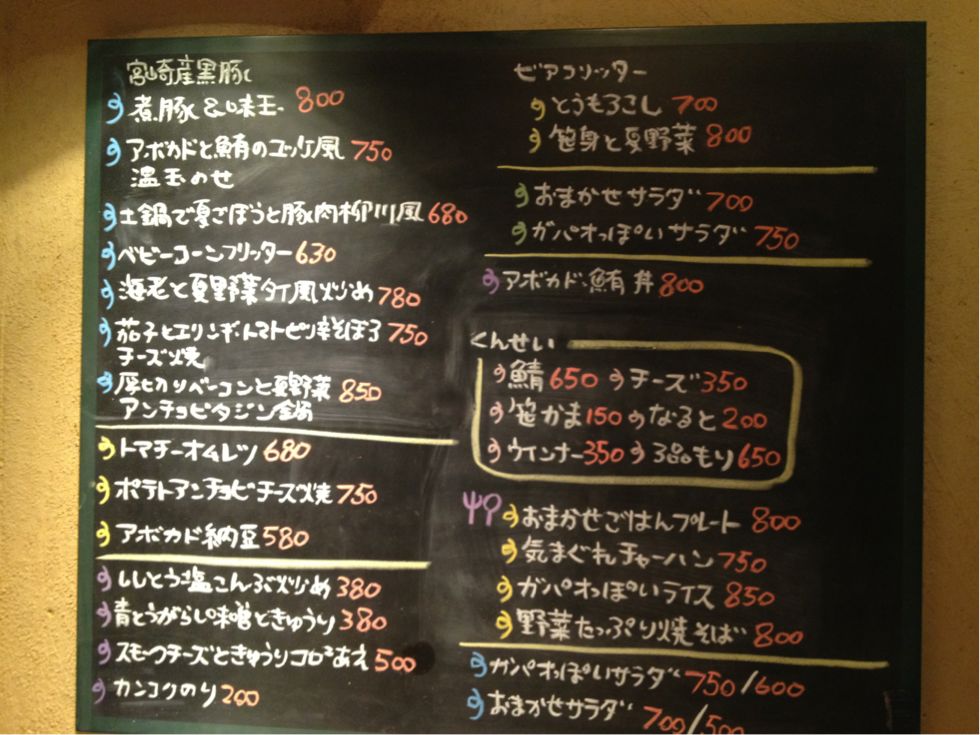 宮崎産黒豚
煮豚&味玉 800
アボカドと鮪のユッケ風 750
温玉のせ
土鍋で夏ごぼうと豚肉柳川風 680
ベビーコーンフリッター 630
海老と夏野菜タイ風炒め 780
茄子とエリンギ・トマトピリ辛そぼろ 750
チーズ焼
厚切りベーコンと夏野菜 850
アンチョビタジン鍋
トマチーオムレツ 680
ポテトアンチョビチーズ焼 750
アボカド納豆 580
ししとう塩こんぶ炒め 380
青とうがらし味噌ときゅうり 380
スモークチーズときゅうりコロコロあえ 500
カンコクのり 200
ビアフリッター
とうもろこし 700
笹身と夏野菜 800
おまかせサラダ 700
ガパオっぽいサラダ 750
アボカド・鮪丼 800
くんせい
鯖 650 チーズ 350
笹かま 150 なると 200
ウインナー 350 3品もり 650
おまかせごはんプレート 800
気まぐれチャーハン 750
ガパオっぽいライス 850
野菜たっぷり焼そば 800
ガパオっぽいサラダ 750/600
おまかせサラダ 700/500